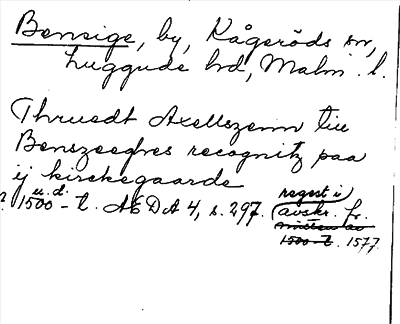 Bensige, by, Kågeröds sn,
Luggude hd, Malm. l.
Thruedt Axellszenn till
Benszeechres recognitz paa
ij kirckegaarde
u.d. regest i
? 1500-t. AEDA 4, s. 297. (avskr. fr.
1500-t. 1577